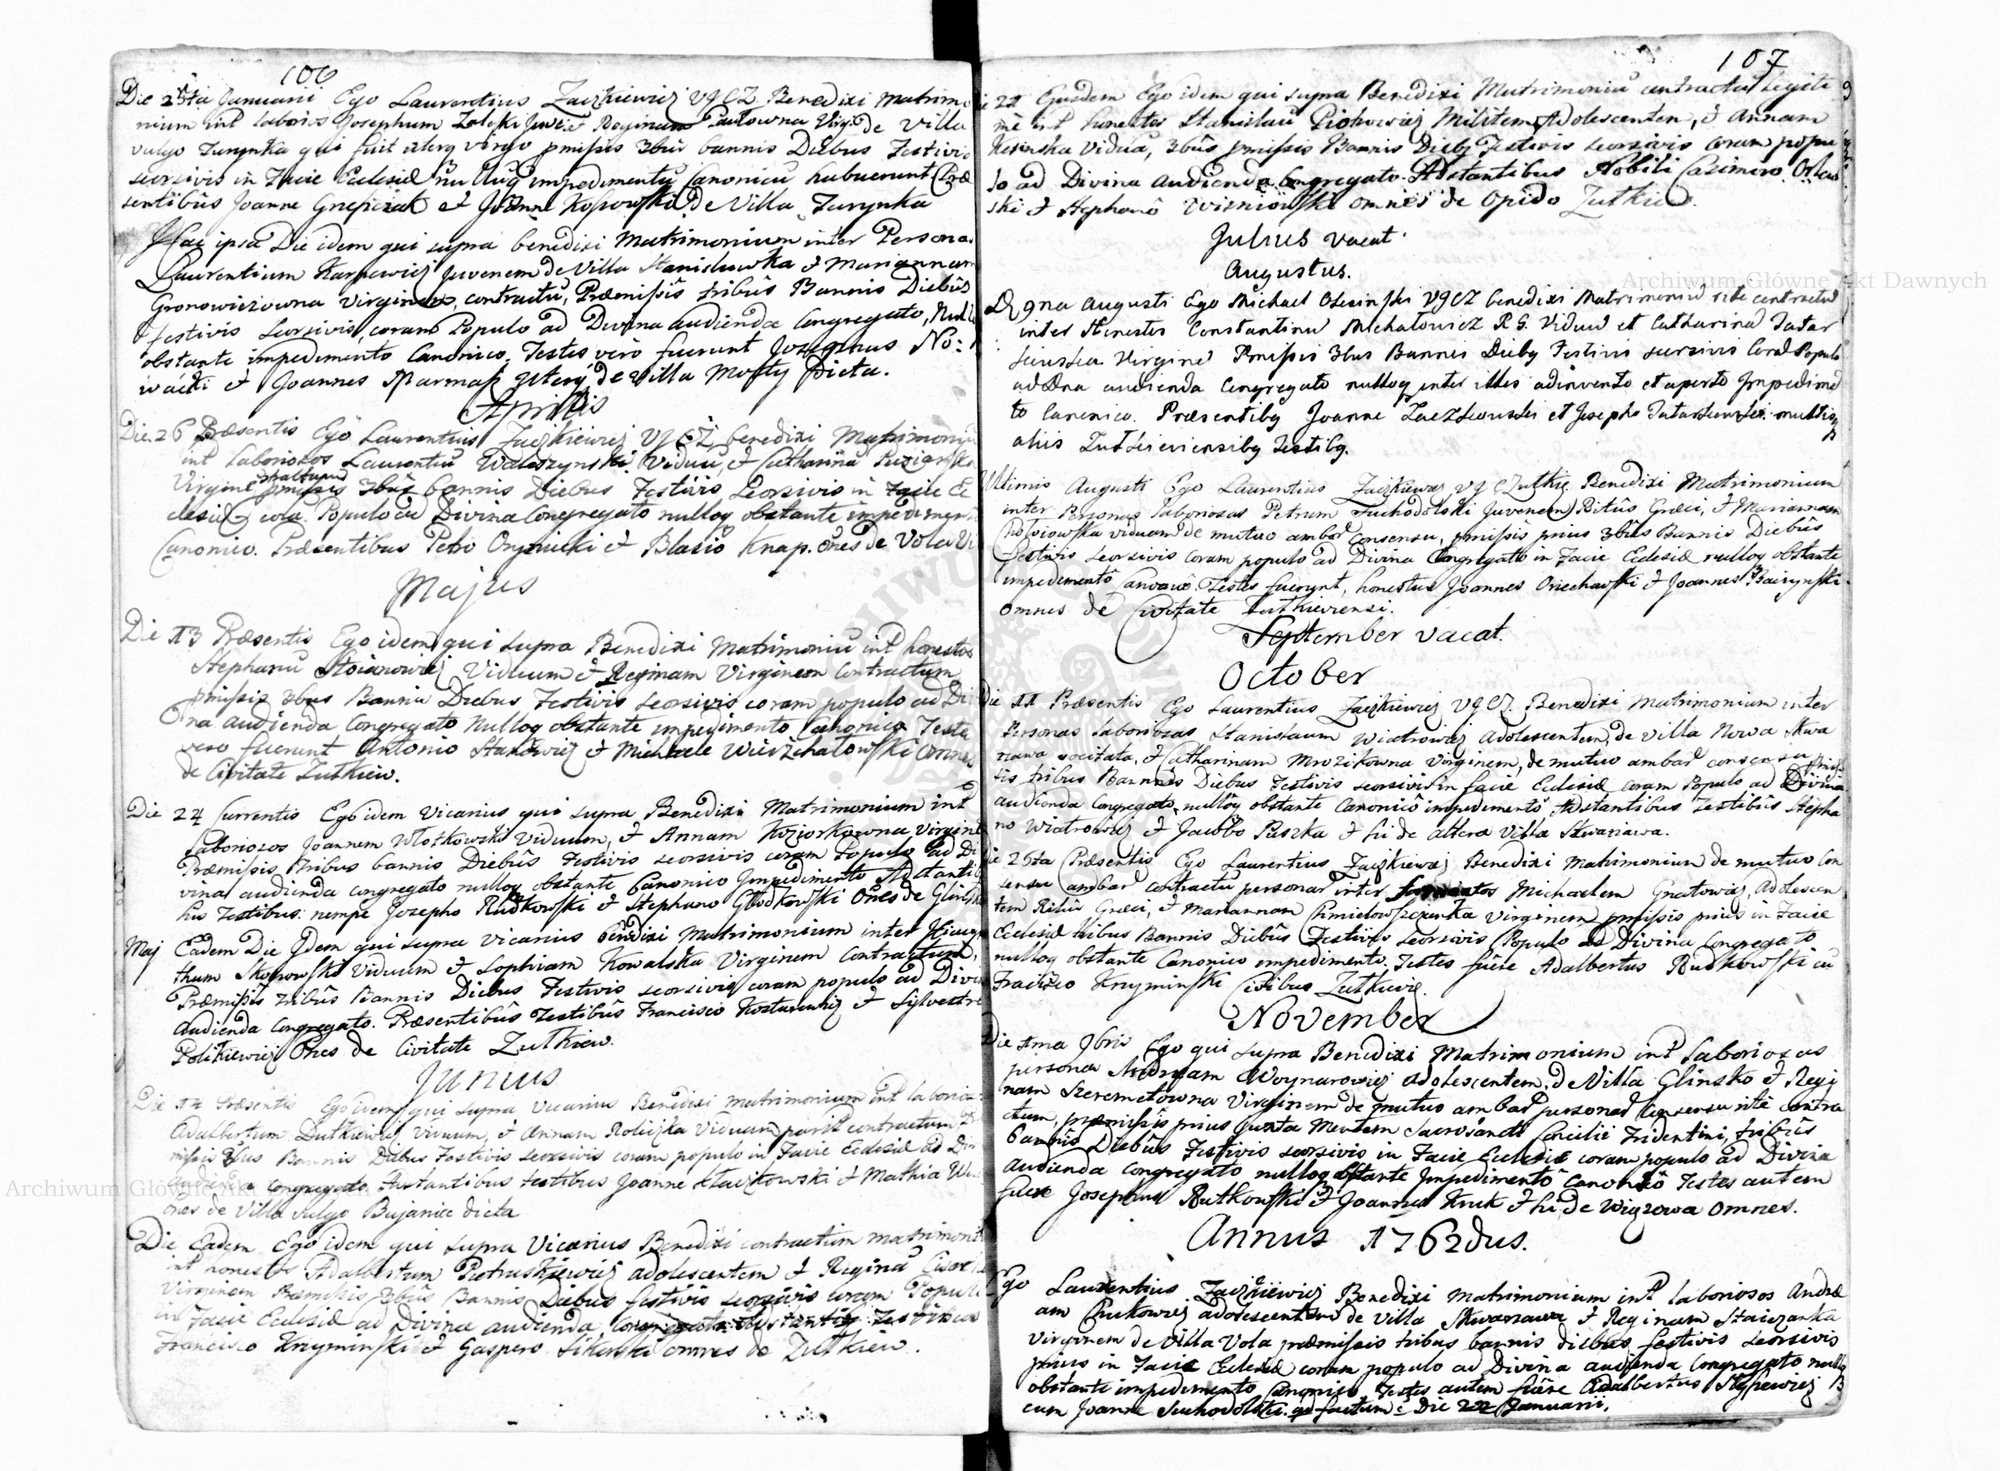 106
Die 25ta Januarii Ego Laurentius Zaczkiewicz VGCZ Benedixi Matrimo
nium int laborios Josephum Zaleski Juve et Reginam Pawlowna Virg de Villa
vulgo Turynka qui fuit uterq virgo pmissis 3bus bannis Diebus Festivis
seorsivis in Facie Eclesiæ nullug impedimentu Canonicu habuerunt Præ
sentibus Joanne et Joanne Kopowski de Villa Turynka
Hac ipsa Die idem qui supra benedixi Matrimonium inter Persona
Laurentium Karpewicz Juvenem de Villa Stanislowka et Mariannam
Gronowiczowna virginem, contractu, Præmissis tribus Bannis Diebus
festivis seorsivis, coram Populo ad Divina audienda Congregato, Nullo
obstante impedimento Canonico. Testes vero fuerunt Josephus No:
wacki et Joannes de Villa Mosty Dicta.
Aprilis
Die 26 Præsentis Ego Laurentius Zaczkiewicz VGCZ benedixi Matrimoniu
int laboriosos Laurentiu Waleszynski Viduu, et Catharina
Virgine pmissis 3bus bannis Diebus Festivis Seorsivis in Facie Ec
clesiæ cora Populo ad Divina Congregato nulloq obstante impedimen
Canonico. Præsentibus Petro et Blasio Knap. omes de Vola
Majus
Die 13 Præsentis Ego idem qui supra Benedixi Matrimoniu int honestos
Stephanu Stoianowicz Viduum et Reginam Virginem Contractum
pmissis 3bus Bannis Diebus Festivis seorsivis coram populo ad Di
vina audienda Congregato Nulloq obstante impedimento Canonico Testes
vero fuerunt Antonio Stanowicz et Michaele Wierzchalowski omnes
de Civitate Zutkiew.
Die 24 Currentis Ego idem Vicarius qui supra Benedixi Matrimonium int
Laboriosos Joannem Wlotkowski Viduum, et Annam Koziorkowna Virgine
Præmissis tribus bannis Diebus Festivis seorsivis coram Populo ad Di
vina audienda Congregato nulloq obstante Canonico Impedimento Adstantib
his Testibus nempe Josepho Rudkowski et Stephano Glodkowski Omes de Glinsk
Maj Eadem Die Idem qui supra Vicarius benedixi Matrimonium inter Hiacyn
thum Skopowski viduum et Sophiam Kowalska Virginem Contractum,
Præmissis tribus Bannis Diebus Festivis seorsivis coram populo ad Divina
Audienda Congregato. Præsentibus Testibus Francisco et Sylvestro
Politkiewicz Omes de Civitate Zutkiew.
Junius
Die 14 Præsentis Ego idem qui supra Vicarius Benedixi matrimonium int laborio
Adalbertum Dutkiewicz viduum, et Annam Roliczka Viduam parit contractum
missis 3bus Bannis Diebus Festivis seorsivis coram populo in Facie Eclesiæ ad Div
audienda Congregato Adstantibus testibus Joanne et Mathia
omes de Villa Vulgo Bujanice dicta
Die Eadem Ego idem qui supra Vicarius Benedixi contractum matrimoni
int honestos Adalbertum Pietruszkiewicz adolescentem et Regina
Virginem Præmissis 3bus Bannis Diebus festivis seorsivis coram Populo
in Facie Eclesiæ ad Divina audienda, Congregato adstantib Testibus
Francisco Krzyminski et Gaspero Sikorski omnes de Zutkiew.
107
Die 22 Ejusdem Ego idem qui supra Benedixi Matrimoniu contractu legiti
me int honestos Stanislau Piotrowicz Militem Adolescentem, et Annam
Resinska Vidua, 3bus pmissis Bannis Dieb Festivis seorsivis coram popu
lo ad Divina audienda Congregato. Adstantibus Nobili Casimiro
ski et Stephano Wisniowski omnes de Opido Zutkiew.
Julius vacat.
Augustus.
Die 9na Augusti Ego Michael Olesinski VGCZ benedixi Matrimoniu rite contractu
inter Honestos Constantinu Michalowicz R G. Viduu et Catharina Tatar
Virgine Pmissis 3bus Bannis Dieby Festivis seorsivis Cora Populo
ad Dna audienda Congregato nulloq inter illos adinvento et aperto Impedime
to Canonico. Præsentiby Joanne Zaczkowski et Josepho multisq
aliis Zutkieviensiby Testiby.
Ultimis Augusti Ego Laurentius Zaczkiewicz VGCZutkie Benedixi Matrimonium
inter Personas laboriosas Petrum Suchodolski Juvenem Ritus Græci, et Mariannam
viduam de mutuo ambar consensu, pmissis prius 3bus Bannis Diebus
Festivis seorsivis coram populo ad Divina Congregato in Facie Eclesiæ nulloq obstante
impedimento canonico Testes fuerunt, honestus Joannes Orzechowski et Joannes
omnes de Civitate Zutkieviensi.
September vacat.
October
Die 11 Præsentis Ego Laurentius Zaczkiewicz VGCZ. Benedixi Matrimonium inter
Personas laboriosas Stanislaum Wiatrowicz adolescentem, de Villa Nowa Skwa
rzawa vocitata, et Catharinam Mrozikowna Virginem, de mutuo ambar consensu pmis
sis tribus Bannis Diebus Festivis seorsivis in facie Eclesiæ coram Populo ad Divina
audienda Congregato, nulloq obstante Canonico impedimento, Adstantibus Testibus Stepha
no Wiatrowicz et Jacobo Puszka et hi de altera Villa Skwarzawa.
Die 25ta Præsentis Ego Laurentius Zaczkiewicz Benedixi Matrimonium de mutuo Con
sensu ambar contractu personar inter Michaelem Gnatowicz, Adolescen
tem Ritus Græci, et Mariannam Virginem, pmissis prius in Facie
Eclesiæ tribus Bannis Diebus Festivis seorsivis Populo ad Divina Congregato
nulloq obstante Canonico impedimento. Testes fuere Adalbertus Rudkowski cu
Fracisco Krzyminski Civibus Zutkiew.
November
Die 1ma 9bris Ego qui supra Benedixi Matrimonium int laboriosas
persona Andream Woynarowicz adolescentem, de Villa Glinsko et Regi
nam Szeremetowna Virginem de mutuo ambar personar Consensu rite contra
ctum, præmissis prius Juxta Mentem Sacrosancti Concilii Tridentini, tribus
bannis Diebus Festivis seorsivis in Facie Eclesiæ coram populo ad Divina
Audienda Congregato nulloq obstante Impedimento Canonico Testes autem
fuere Josephus Rutkowski et Joannes Kruk et hi de Wiązowa omnes.
Annus 1762dus.
Ego Laurentius Zaczkiewicz Benedixi Matrimonium int laboriosos Andre
am Crukowicz adolescentem de Villa Skwarzawa et Reginam Staiczanka
virginem de Villa Vola præmissis tribus bannis diebus festivis seorsivis
prius in Facie Eclesiæ coram populo ad Divina audienda Congregato nulloq
obstante impedimento Canonico Testes autem fuere Adalbertus
cum Joanne Suchodolski qd factum e Die 22 Januarii.
Archiwum Główne Akt Dawnych
Archiwum Główne Akt Dawnych